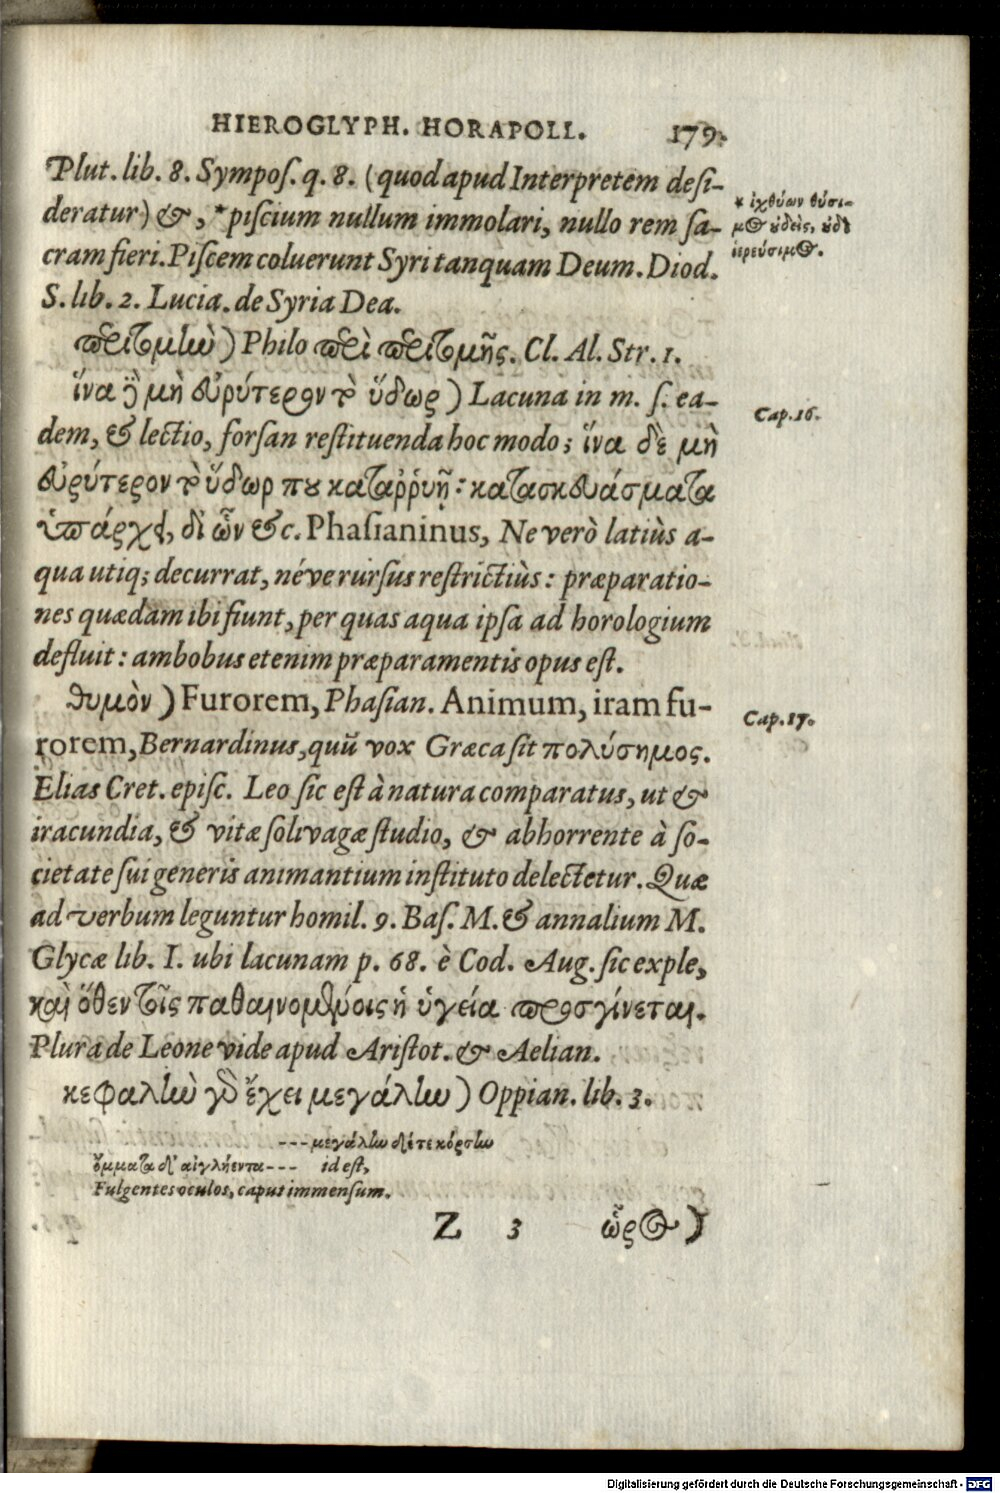 HIEROGLYPH. HORAPOLL. 179.
Plut. lib. 8. Sympos. q. 8. (quod apud Interpretem desi-
deratur) &, *piscium nullum immolari, nullo rem sa-
cram fieri. Piscem coluerunt Syri tanquam Deum. Diod.
S. lib. 2. Lucia. de Syria Dea.
* ἰχθύων θύσι-
μος οὐδεὶς, οὐδὲ
ἱερεύσιμος.
περιτομὴν) Philo περὶ περιτομῆς. Cl. Al. Str. 1.
ἵνα ϳ μὴ εὐρύτερον τὸ ὕδως) Lacuna in m. s. ea-
dem, & lectio, forsan restituenda hoc modo; ἵνα δὲ μὴ
εὐρύτερον τὸ ὕδωρ που καταῤῥυῇ: κατασκευάσματα
ὑπάρχει, δι' ὧν &c. Phasianinus, Ne verò latiùs a-
qua utiq; decurrat, néve rursus restrictiùs: præparatio-
nes quædam ibi fiunt, per quas aqua ipsa ad horologium
defluit: ambobus etenim præparamentis opus est.
Cap. 16.
θυμὸν) Furorem, Phasian. Animum, iram fu-
rorem, Bernardinus, quũ vox Græca sit πολύσημος.
Elias Cret. episc. Leo sic est à natura comparatus, ut &
iracundia, & vitæ solivagæ studio, & abhorrente à so-
cietate sui generis animantium instituto delectetur. Quæ
ad verbum leguntur homil. 9. Bas. M. & annalium M.
Glycæ lib. I. ubi lacunam p. 68. è Cod. Aug. sic exple,
καὶ ὅθεν τοῖς παθαινομένοις ἡ ὑγεία προσγίνεται.
Plura de Leone vide apud Aristot. & Aelian.
Cap. 17.
κεφαλὴν γὰρ ἔχει μεγάλην) Oppian. lib. 3.
---μεγάλην δέ τε κόρσην
ὄμματα δ' αἰγλήεντα--- id est,
Fulgentes oculos, caput immensum.
Z 3 ὧρος)
Digitalisierung gefördert durch die Deutsche Forschungsgemeinschaft - DFG